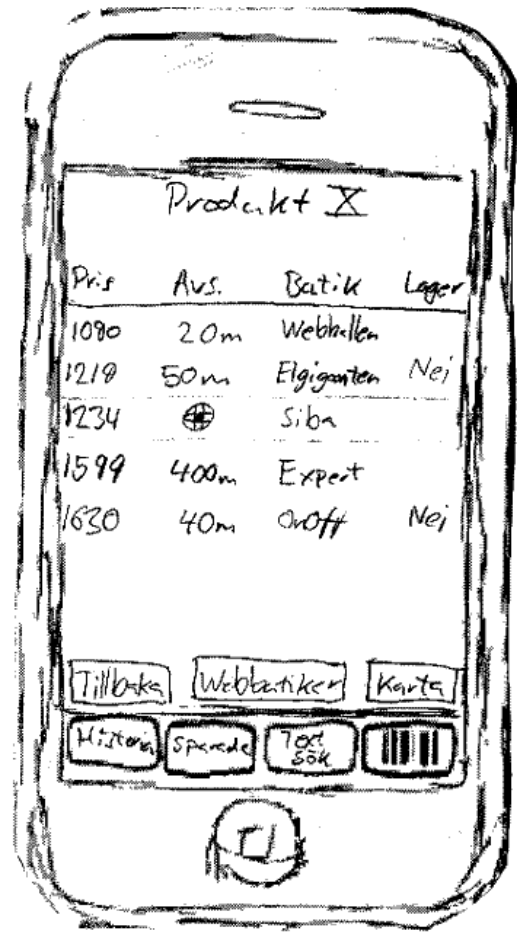 Produkt X
Pris Avs. Butik Lager
1080 20m Webhallen
1218 50m Elgiganten Nej
1234 Siba
1599 400m Expert
1630 40m OnOff Nej
Tillbaka Webbutiker Karta
Historia Sparade Text
sök